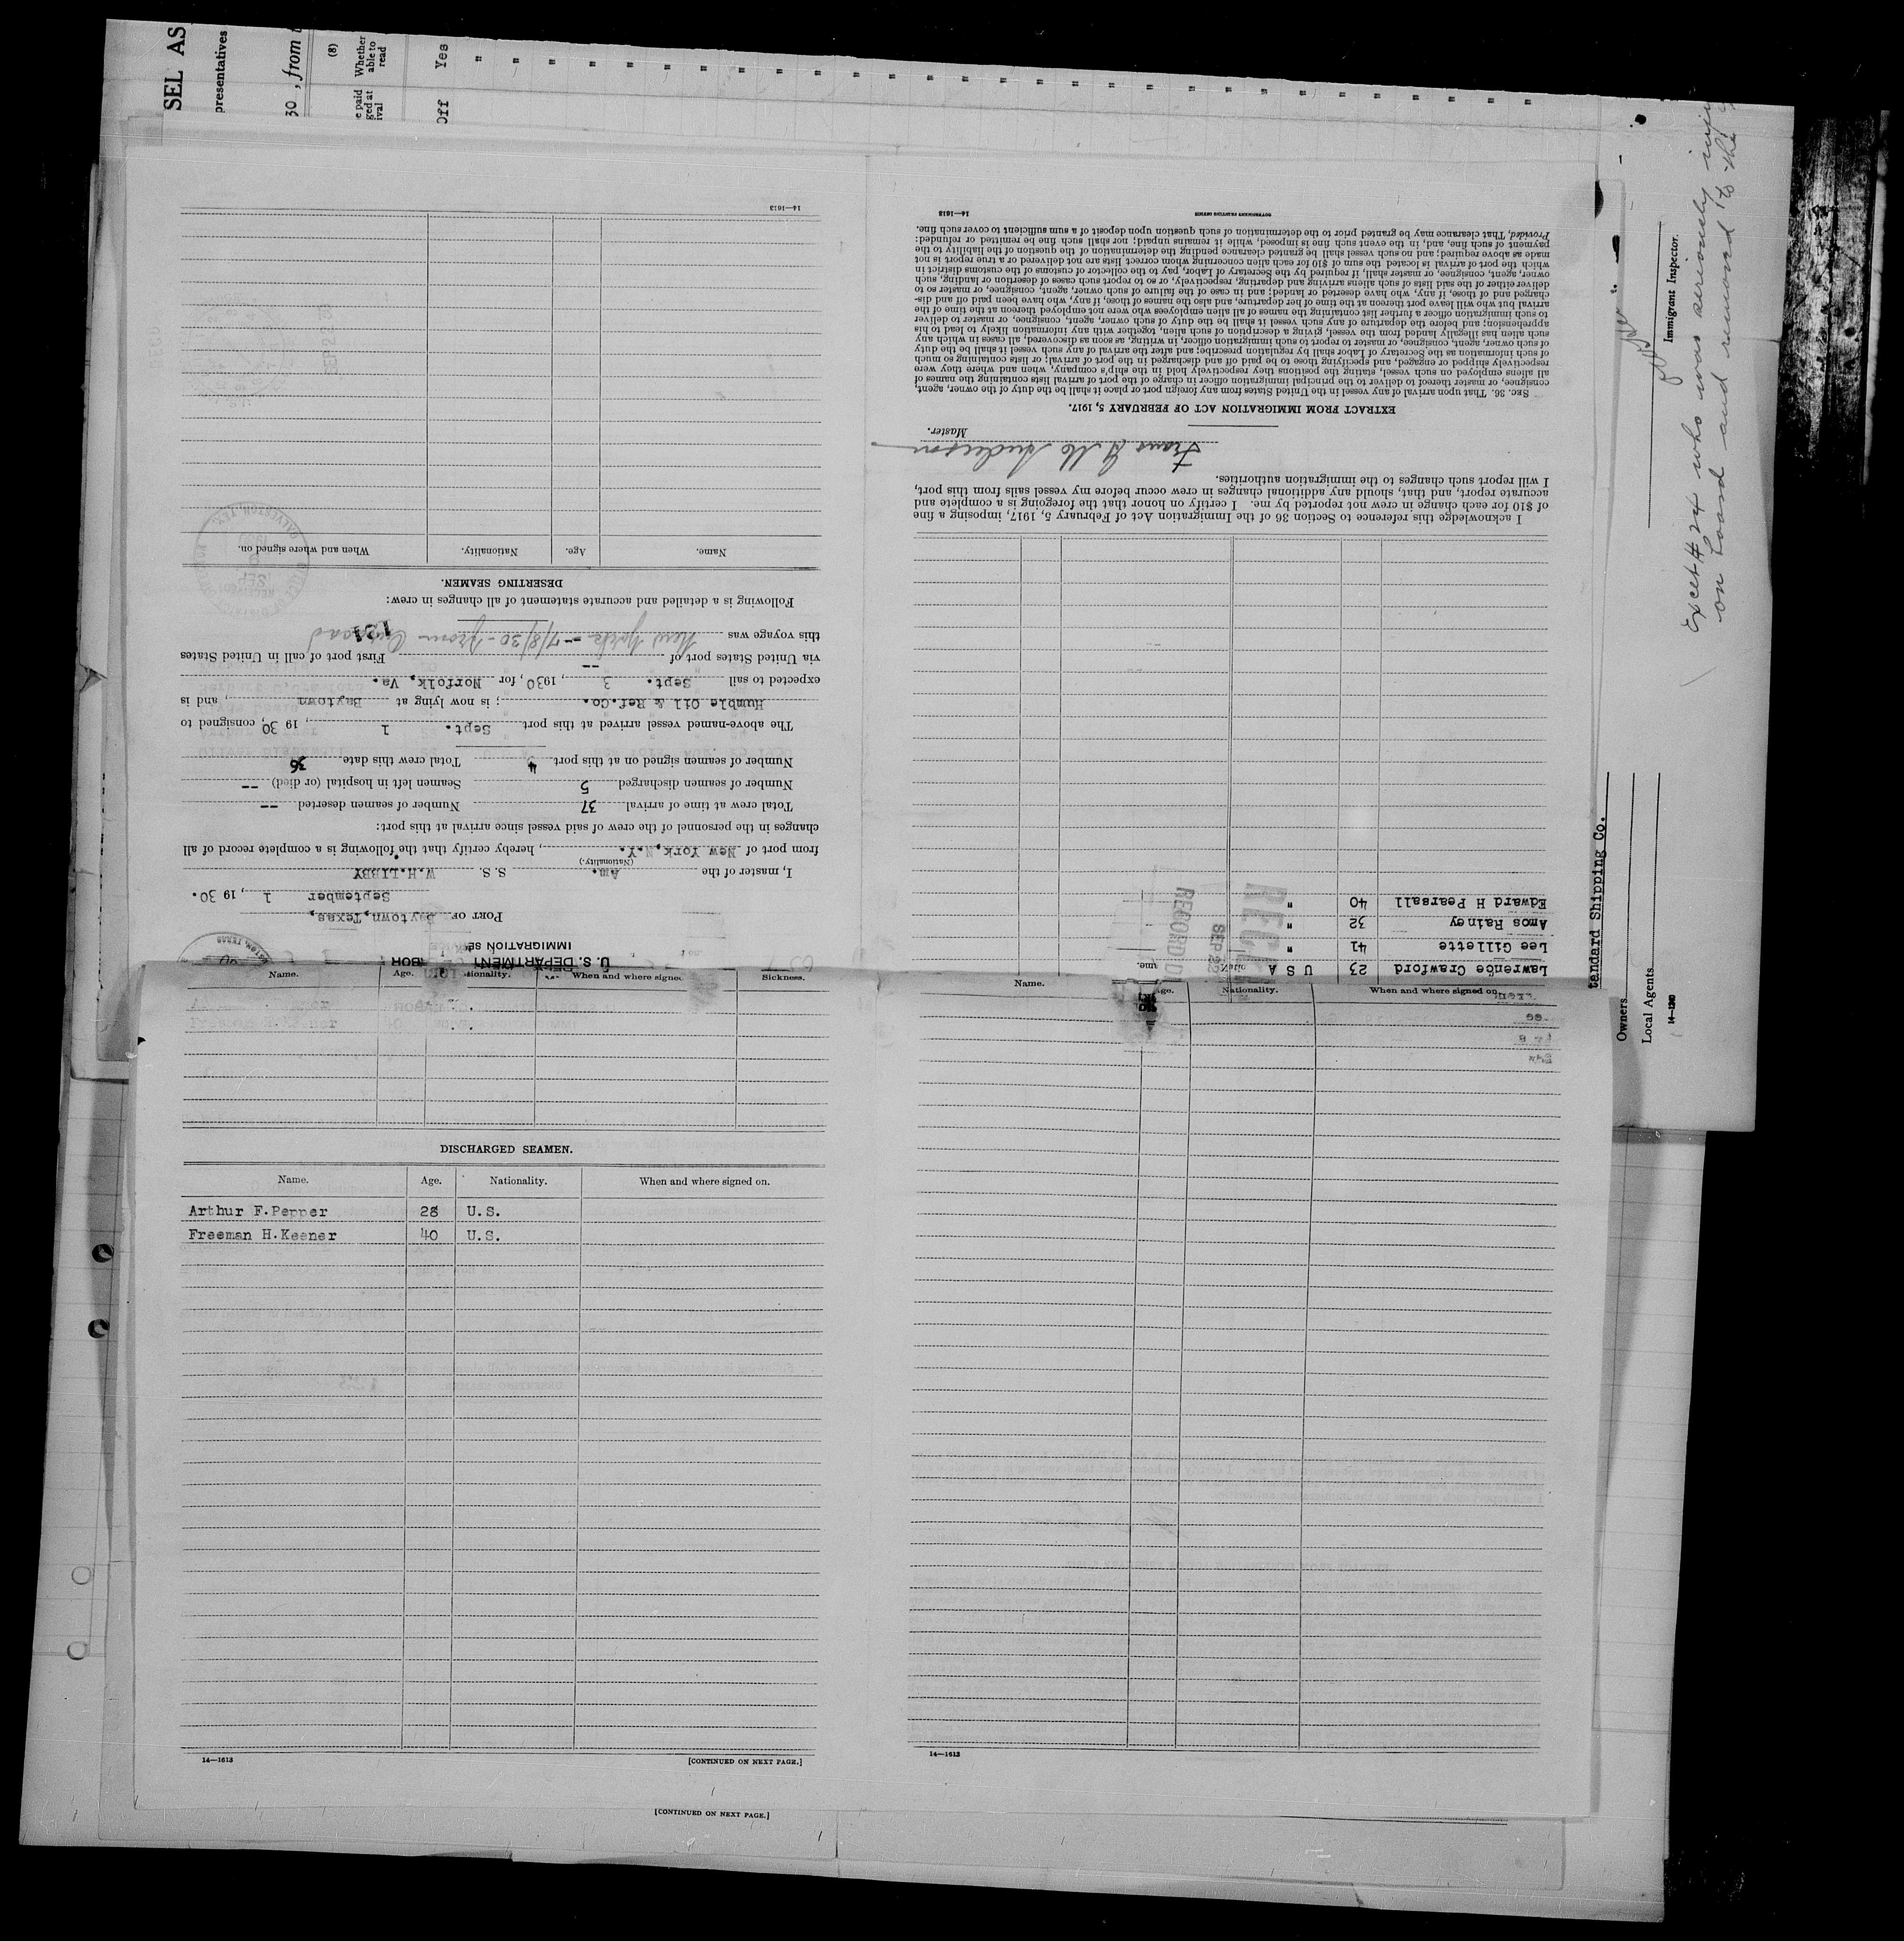 SEL AS
presentatives
30 , from
(8)
Whether
able to
read
e paid
ged at
ival
Off Yes
" " " " " " " " " " " " " " " " " " " " " " " " " " " " "
U. S. DEPARTMENT LABOR
IMMIGRATION SE
PORT OF Baytown, Texas,
September 1 , 19 30.
I, master of the Am. S. S. W.H.LIBBY
(Nationality.)
from port of New York, N.Y. , hereby certify that the following is a complete record of all
changes in the personnel of the crew of said vessel since arrival at this port:
Total crew at time of arrival 37 Number of seamen deserted --
Number of seamen discharged 5 Seamen left in hospital (or died) --
Number of seamen signed on at this port 4 Total crew this date 36
The above-named vessel arrived at this port Sept. 1 , 19 30, consigned to
Humble Oil & Ref.Co. ; is now lying at Baytown , and is
expected to sail Sept. 3 , 1930, for Norfolk, Va.
via United States port of -- First port of call in United States
this voyage was New York - 7/8/30 - from
Following is a detailed and accurate statement of all changes in crew:
DESERTING SEAMEN.
Name. Age. Nationality. When and where signed on.
GALVESTON, TEX.
RECEIVED
SEP
14—1613
Lawrence Crawford 23 U S A
Lee Gillette 41 "
Amos Rainey 32 "
Edward H Pearsall 40 "
SEP 22
I acknowledge this reference to Section 36 of the Immigration Act of February 5, 1917, imposing a fine
of $10 for each change in crew not reported by me. I certify on honor that the foregoing is a complete and
accurate report, and that, should any additional changes in crew occur before my vessel sails from this port,
I will report such changes to the immigration authorities.
Anderson
Master.
EXTRACT FROM IMMIGRATION ACT OF FEBRUARY 5, 1917.
SEC. 36. That upon arrival of any vessel in the United States from any foreign port or place it shall be the duty of the owner, agent,
consignee, or master thereof to deliver to the principal immigration officer in charge of the port of arrival lists containing the names of
all aliens employed on such vessel, stating the positions they respectively hold in the ship's company, when and where they were
respectively shipped or engaged, and specifying those to be paid off and discharged in the port of arrival; or lists containing so much
of such information as the Secretary of Labor shall by regulation prescribe; and after the arrival of any such vessel it shall be the duty
of such owner, agent, consignee, or master to report to such immigration officer, in writing, as soon as discovered, all cases in which any
such alien has illegally landed from the vessel, giving a description of such alien, together with any information likely to lead to his
apprehension; and before the departure of any such vessel it shall be the duty of such owner, agent, consignee, or master to deliver
to such immigration officer a further list containing the names of all alien employees who were not employed thereon at the time of the
arrival but who will leave port thereon at the time of her departure, and also the names of those, if any, who have been paid off and dis-
charged and of those, if any, who have deserted or landed; and in case of the failure of such owner, agent, consignee, or master so to
deliver either of the said lists of such aliens arriving and departing, respectively, or so to report such cases of desertion or landing, such
owner, agent, consignee, or master shall, if required by the Secretary of Labor, pay to the collector of customs of the customs district in
which the port of arrival is located the sum of $10 for each alien concerning whom correct lists are not delivered or a true report is not
made as above required; and no such vessel shall be granted clearance pending the determination of the question of the liability to the
payment of such fine, and, in the event such fine is imposed, while it remains unpaid; nor shall such fine be remitted or refunded:
Provided, That clearance may be granted prior to the determination of such question upon deposit of a sum sufficient to cover such fine.
GOVERNMENT PRINTING OFFICE
14—1613
Name. Age. Nationality. When and where signed Sickness.
DISCHARGED SEAMEN.
Name. Age. Nationality. When and where signed on.
Arthur F.Pepper 28 U.S.
Freeman H.Keener 40 U.S.
14—1613 [CONTINUED ON NEXT PAGE.]
[CONTINUED ON NEXT PAGE.]
Name. Age. Nationality. When and where signed on
14—1613
Immigrant Inspector.
Except #24 who was seriously
on board and removed to the
tandard Shipping Co.
Owners
Local Agents
14—1240